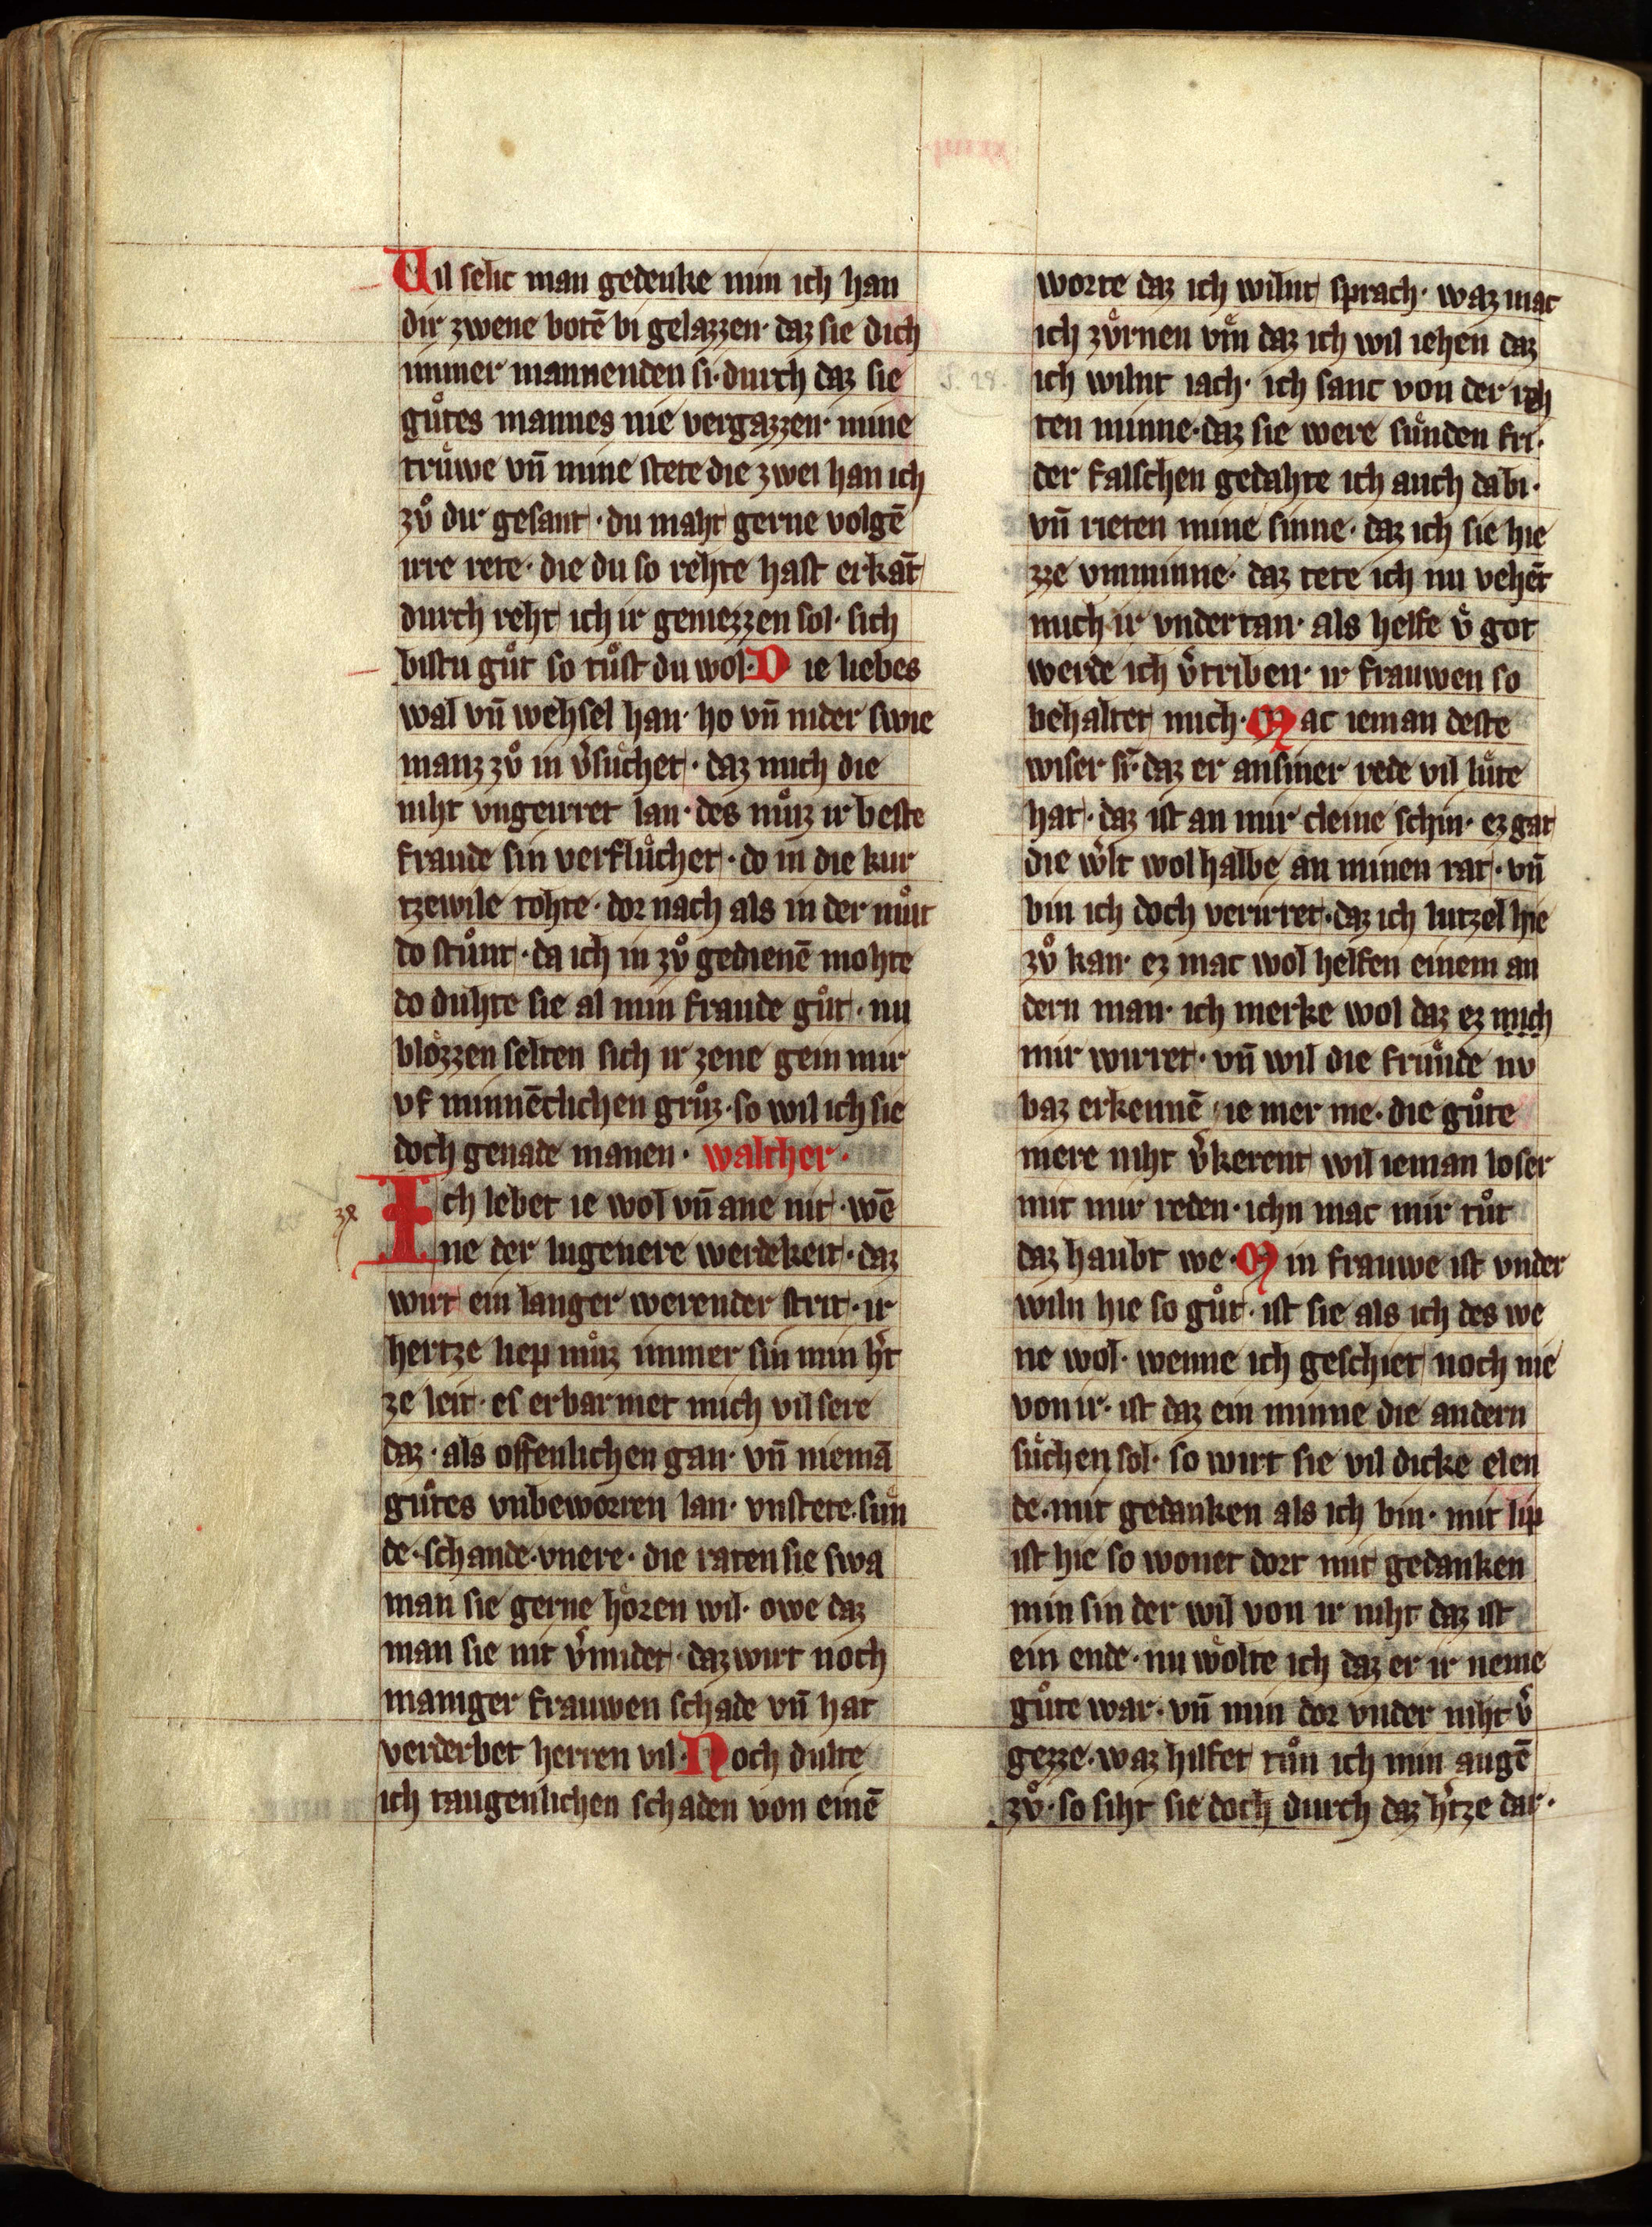 Uil selic man gedenke min ich han
dir zwene botē bi gelazzen· daz sie dich
immer mannenden si· durch daz sie
gůtes mannes nie vergazzen· mine
trůwe vn̄ mine stete die zwei han ich
zů dir gesant· du maht gerne volgē
irre rete· die du so rehte hast erkāt
durch reht ich ir geniezzen sol· sich
bistu gůt so tůst du wol· Die liebes
wal vn̄ wehsel han· ho vn̄ nider swie
manz zů in v̓sůchet· daz mich die
niht vngeirret lan· des můz ir beste
fraude sin verflůchet· do in die kur
tzewile tohte· dor nach als in der můt
do stůnt· da ich in zů gedienē mohte
do duhte sie al min fraude gůt· nu
blözzen selten sich ir zene gein mir
vf minnēclichen grůz· so wil ich sie
doch genade manen· walther·
Ich lebet ie wol vn̄ ane nit· wē
ne der lugenere werdekeit· daz
wirt ein langer werender strit· ir
hertze liep můz immer sin min h̓t
ze leit· es erbarmet mich vil sere
daz· als offenlichen gan· vn̄ niemā
gůtes vnbeworren lan· vnstete· sün
de· schande· vnere· die raten sie swa
man sie gerne hören wil· owe daz
man sie nit v̓midet· daz wirt noch
maniger frauwen schade vn̄ hat
verderbet herren vil· Noch dulte
ich taugenlichen schaden von einē
worte daz ich wilnt sprach· waz mac
ich zürnen vm̄ daz ich wil iehen daz
ich wilnt iach· ich sanc von der reh
ten minne· daz sie were sünden fri·
der falschen gedahte ich auch dabi·
vn̄ rieten mine sinne· daz ich sie hie
zze vnminne· daz tete ich nu vehēt
mich ir vndertan· als helfe v̓ got
werde ich v̓triben· ir frauwen so
behaltet mich· Mac ieman deste
wiser sī· daz er an siner rede vil lüte
hat· daz ist an mir cleine schin· ez gat
die w̓lt wol halbe an minen rat· vn̄
bin ich doch verirret· daz ich lutzel hie
zů kan· ez mac wol helfen einem an
dern man· ich merke wol daz ez mich
mir wirret· vn̄ wil die fründe nv
baz erkennē ie mer me· die gůte
mere niht v̓kerent wil ieman loser
mit mir reden· ichn mac mir tůt
daz haubt we· Min frauwe ist vnder
wiln hie so gůt· ist sie als ich des we
ne wol· wenne ich geschiet noch nie
von ir· ist daz ein minne die andern
sůchen sol· so wirt sie vil dicke elen
de· mit gedanken als ich bin· mit lip
ist hie so wonet dort mit gedanken
min sin der wil von ir niht daz ist
ein ende· nu wölte ich daz er ir neme
gůte war· vn̄ min dor vnder niht v̓
gezze· waz hilfet tůn ich min augē
zů· so siht sie doch durch daz h̓tze dar·